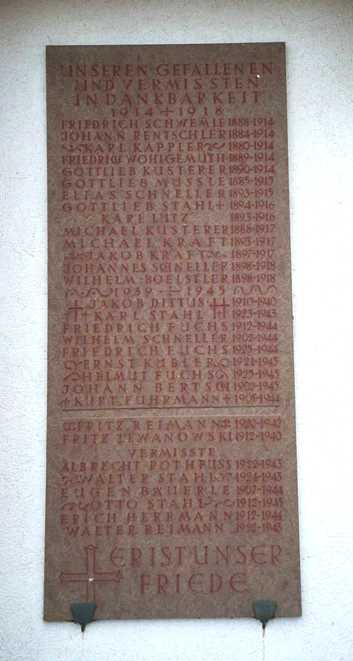 UNSEREN GEFALLENEN
UND VERMISSTEN
IN DANKBARKEIT
1914 + 1918
FRIEDRICH SCHWEMLE 1888-1914
JOHANN RENTSCHLER 1884-1914
KARL KAPPLER 1880-1914
FRIEDRICH WOHLGEMUTH 1889-1914
GOTTLIEB KUSTERER 1890-1914
GOTTLIEB MUSSLE 1885-1915
ELIAS SCHNELLER 1893-1915
GOTTLIEB STAHL + 1894-1916
KARL LITZ 1893-1916
MICHAEL KUSTERER 1888-1917
MICHAEL KRAFT 1895-1917
JAKOB KRAFT 1897-1917
JOHANNES SCHNELLER 1898-1918
WILHELM BOELSTLER 1898-1918
1939 - 1945
JAKOB DITTUS 1910-1940
KARL STAHL 1923-1943
FRIEDRICH FUCHS 1912-1944
WILHELM SCHNELLER 1902-1944
FRIEDRICH FUCHS
ERNST KÜBLER 1921-1945
HELMUT FUCHS 1925-1945
JOHANN BERTSCH 1902-1945
+ KURT FUHRMANN + 1905-1944
FRITZ REIMANN
FRITZ LEWANOWSKI 1912-1940
VERMISSTE
ALBRECHT ROTHFUSS 1922-1943
WALTER STAHL 1924-1943
EUGEN BÄUERLE 1907-1944
OTTO STAHL 1912-1945
ERICH HERRMANN 1912-1944
WALTER REIMANN
ER IST UNSER
FRIEDE